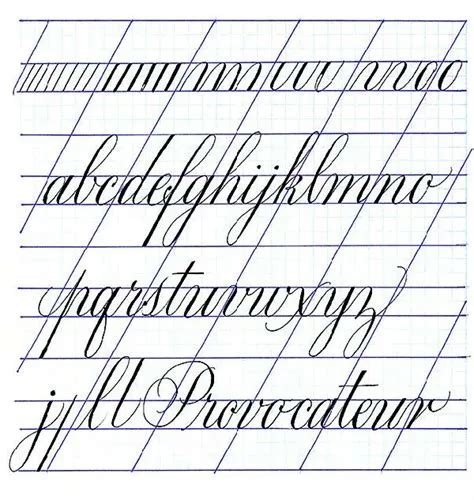 abcdefghijklmno
pqrstuvwxyz
j l l Provocateur